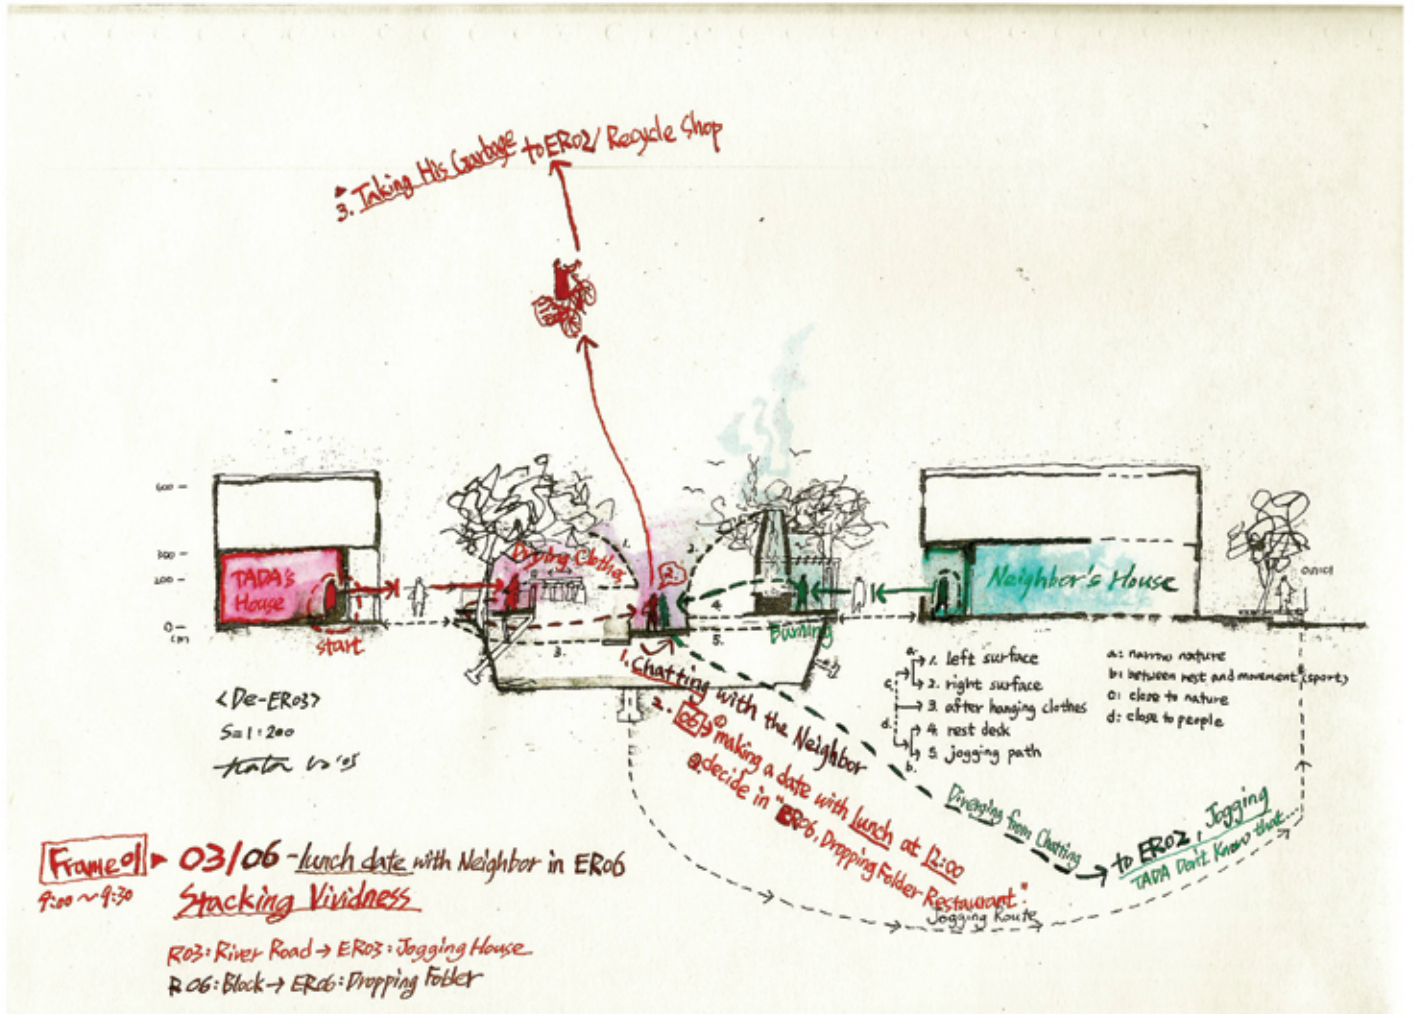 3. Taking His Garbage to ER02/ Recycle Shop
600
300
200
0
(cm)
TADA's
House
start
Drying Clothes
1.
2.
2.
3.
4.
5.
Burning
Neighbor's House
<De-ER03>
S=1:200
1. Chatting with the Neighbor
2. 06 → ① making a date with lunch at 12:00
② decide in "ER06, Dropping Folder Restaurant."
a.
1. left surface
2. right surface
c.
3. after hanging clothes
d.
4. rest desk
5. jogging path
b.
a: narrow nature
b: between rest and movement (sport)
c: close to nature
d: close to people
Diverging from Chatting
to ER02, Jogging
TADA Don't Know that...
Jogging Route
Frame 01 ▶ 03/06 - lunch date with Neighbor in ER06
9:00 ~ 9:30
Stacking Vividness
R03: River Road → ER03: Jogging House
R06: Block → ER06: Dropping Folder